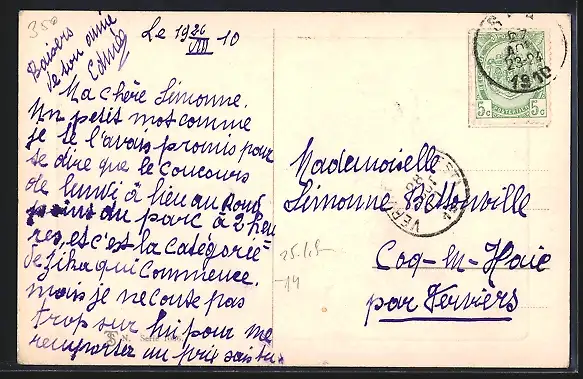 350
Baisers
de ton amie
Edmée
Le 1926/VIII 10
Ma chère Simonne.
Un petit mot comme
je te l'avais promis pour
te dire que le concours
de lundi à lieu au rond
point du parc à 2 heu
res, et c'est la catégorie
de Zika qui commence.
mais je ne conte pas
trop sur lui pour me
remporter un prix sais tu.
Mademoiselle
Simonne Bettonville
Coq-in-Haie
par Verviers
5c 5c
1910
N. Série